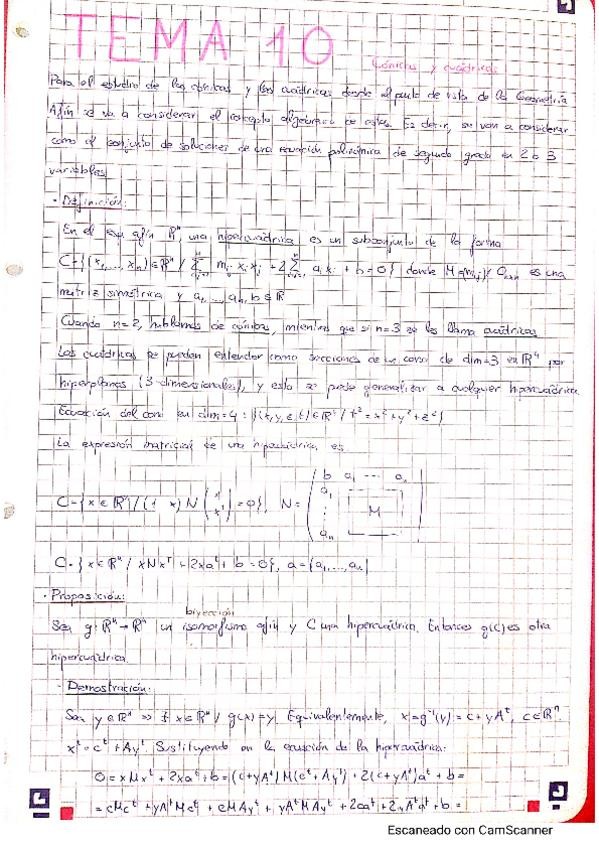 TEMA 10
Cónicas y cuádricas
Para el estudio de las cónicas y las cuádricas desde el punto de vista de la Geometría
Afín se va a considerar el concepto algebraico de estas. Es decir, se van a considerar
como el conjunto de soluciones de una ecuación polinómica de segundo grado en 2 ó 3
variables.
· Definición:
En el esp. afín ℝⁿ, una hipercuádrica es un subconjunto de la forma
C={(x₁,...,xₙ)∈ℝⁿ / Σ mᵢⱼ xᵢxⱼ + 2Σ aᵢxᵢ + b = 0} donde M=(mᵢⱼ)≠Oₙₓₙ es una
matriz simétrica y a₁,...,aₙ, b∈ℝ
Cuando n=2, hablamos de cónicas, mientras que si n=3 se les llama cuádricas.
Las cuádricas se pueden entender como secciones de un cono de dim=3 en ℝ⁴ por
hiperplanos (3-dimensionales), y esto se puede generalizar a cualquier hipercuádrica.
Ecuación del cono en dim=4: {(x,y,z,t)∈ℝ⁴ / t²=x²+y²+z²}
La expresión matricial de una hipercuádrica es
C={x∈ℝⁿ / (1 x) N (1 xᵗ) = 0}, N = (b a₁ ... aₙ
a₁
⋮ M
aₙ)
C={x∈ℝⁿ / xNxᵗ + 2xaᵗ + b = 0}, a=(a₁,...,aₙ)
· Proposición:
biyección
Sea g: ℝⁿ→ℝⁿ un isomorfismo afín y C una hipercuádrica. Entonces g(C) es otra
hipercuádrica.
- Demostración:
Sea y∈ℝⁿ ⇒ ∃ x∈ℝⁿ / g(x)=y. Equivalentemente, x=g⁻¹(y)=c+yAᵗ, c∈ℝⁿ.
xᵗ=cᵗ+Ayᵗ. Sustituyendo en la ecuación de la hipercuádrica:
0=xMxᵗ+2xaᵗ+b=(c+yAᵗ)M(cᵗ+Ayᵗ)+2(c+yAᵗ)aᵗ+b=
=cMcᵗ+yAᵗMcᵗ+cMAyᵗ+yAᵗMAyᵗ+2caᵗ+2yAᵗaᵗ+b=
Escaneado con CamScanner